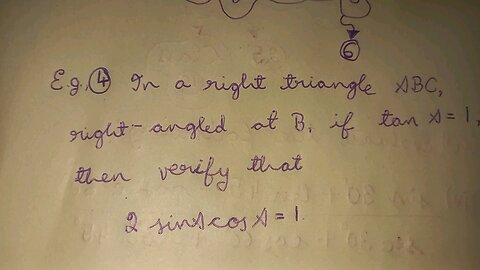 6
E.g. 4 In a right triangle ABC,
right-angled at B, if tan A = 1,
then verify that
2 sin A cos A = 1.